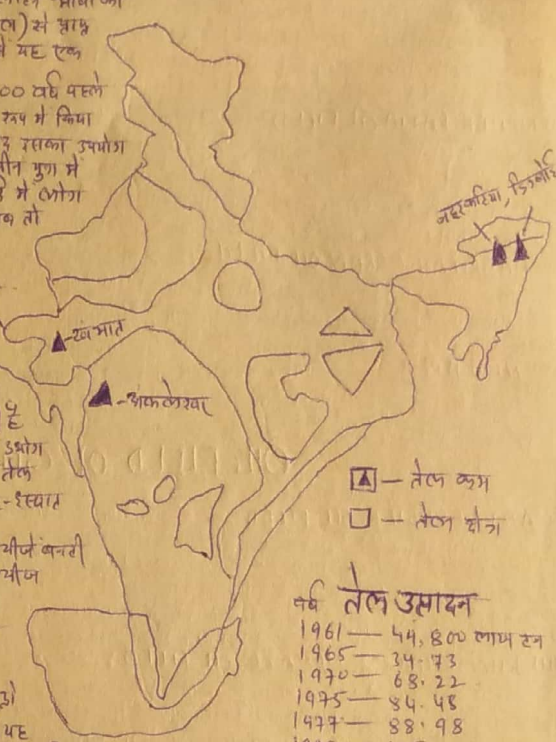 ल) से प्राप्त
में यह एक
00 वर्ष पहले
रूप में किया
इसका उपयोग
चीन युग में
में लोग
तो
नहरकटिया, डिगबोई
खंभात
अकलेश्वर
है
उद्योग
तेल
इस्पात
चीजें बनती
चीज
यह
— तेल कूप
— तेल क्षेत्र
वर्ष तेल उत्पादन
1961 — 44,800 लाख टन
1965 — 34.73
1970 — 68.22
1975 — 84.48
1977 — 88.98